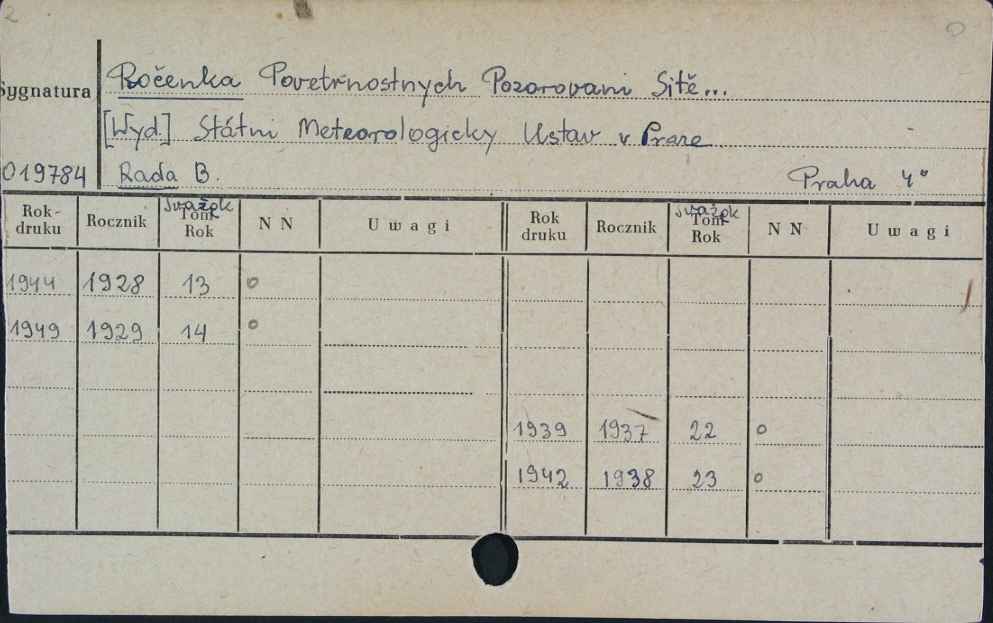 Sygnatura Ročenka Povetrnostnych Pozorovani Sitě...
[Wyd.] Státni Meteorologicky Ustav v Praze
019784 Rada B. Praha 4°
Rok-druku Rocznik zwążek Tom Rok N N Uwagi Rok druku Rocznik zwążek Tom Rok N N Uwagi
1944 1928 13 o
1949 1929 14 o
1939 1937 22 o
1942 1938 23 o